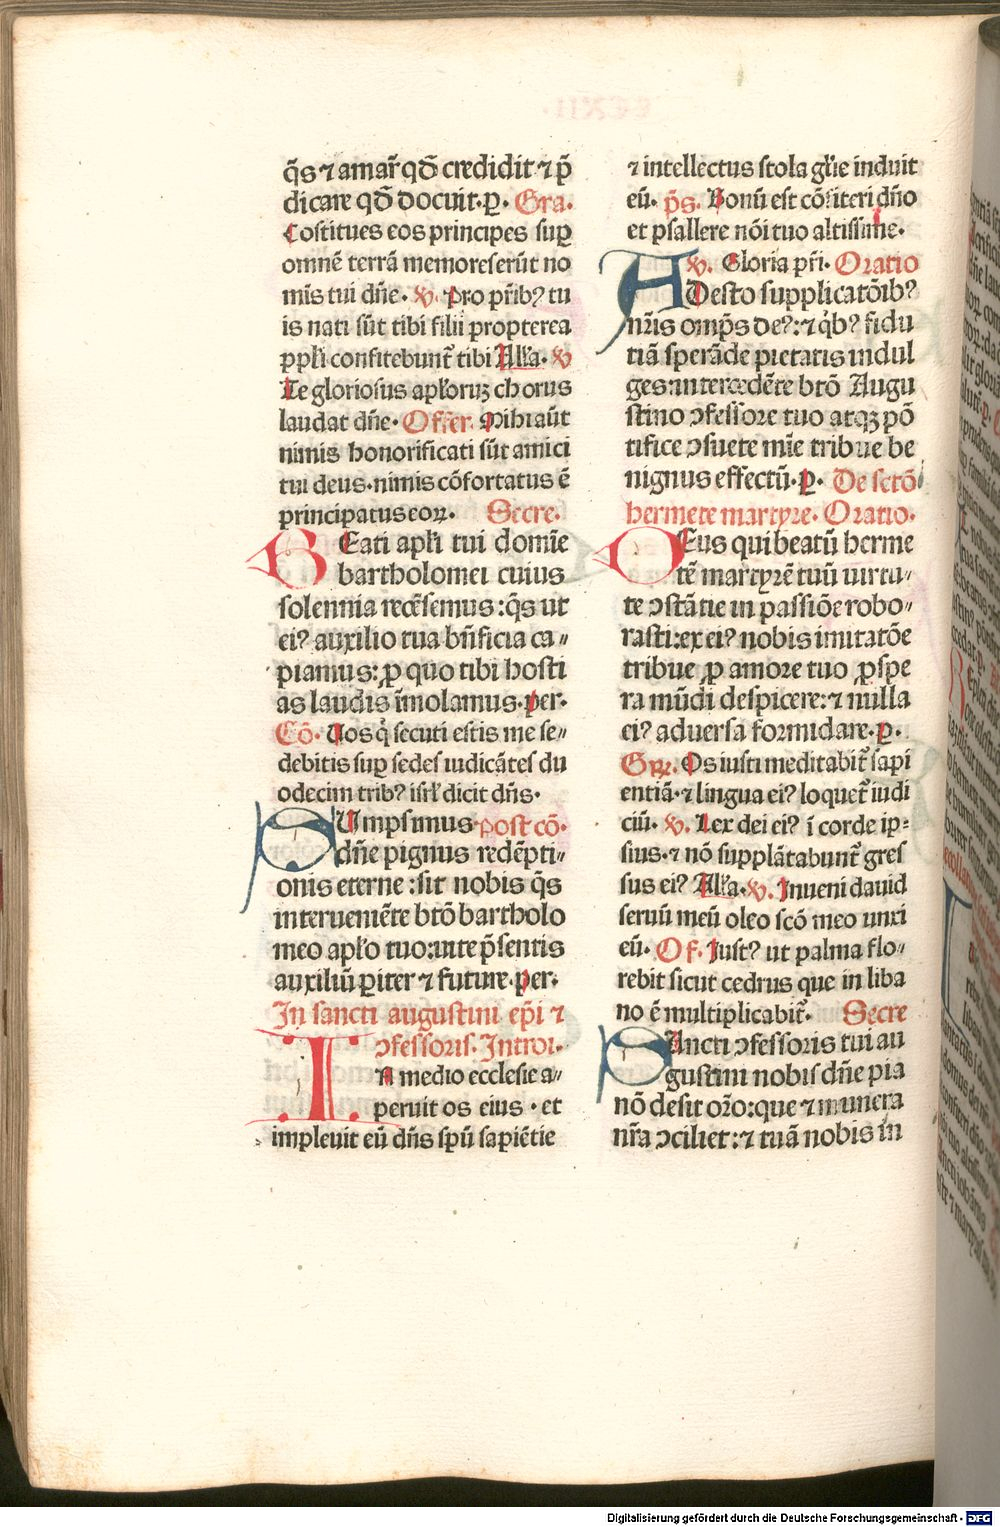 q̄s ⁊ amar̄ qd̄ credidit ⁊ p̄
dicare qd̄ docuit. ꝑ. Gra.
Costitues eos principes suꝑ
omnē terrā memoreserūt no
mīs tui dn̄e. v̇. Pro pr̄ib? tu
is nati sūt tibi filii propterea
ppl̄i confitebunt̄ tibi All̄a. v̇
Te gloriosus apl̄oruꝫ chorus
laudat dn̄e. Offer. Mihi aūt
nimis honorificati sūt amici
tui deus. nimis cōfortatus ē
principatus eoꝝ. Secre.
BEati apl̄i tui domīe
bartholomei cuius
solennia recēsemus: q̄s ut
ei? auxilio tua bn̄ficia ca〃
piamus: ꝓ quo tibi hosti
as laudis īmolamus. per.
Cō. Uos q̄ secuti estis me se〃
debitis suꝑ sedes iudicātes du
odecim trib? isrl̄ dicit dn̄s.
SUmpsimus post cō.
dn̄e pignus redēpti〃
onis eterne: sit nobis q̄s
interueniēte btō bartholo
meo apl̄o tuo: uite p̄sentis
auxiliū ꝑiter ⁊ future. per.
In sancti augustini ep̄i ⁊
ↄfessoris. Introi.
IN medio ecclesie a〃
peruit os eius. et
impleuit eū dn̄s spū sapiētie
⁊ intellectus stola gl̄ie induit
eū. p̄s. Bonū est cōfiteri dn̄o
et psallere nōi tuo altissime.
v̇. Gloria pr̄i. Oratio
ADesto supplicatōib?
nr̄is omp̄s de?: ⁊ q̇b? fidu
tiā sperāde pietatis indul
ges: intercedēte btō Augu
stino ↄfessore tuo atqꝫ pō
tifice ↄsuete mīe tribue be
nignus effectū. ꝑ. De sctō
hermete martyre. Oratio.
DEus qui beatū herme
tē martyrē tuū uirtu〃
te ↄstātie in passiōe robo〃
rasti: ex ei? nobis imitatōe
tribue ꝓ amore tuo ꝓspe
ra mūdi despicere: ⁊ nulla
ei? aduersa formidare. ꝑ.
Gr̄. Os iusti meditabit̄ sapi
entiā. ⁊ lingua ei? loquet̄ iudi
ciū. v̇. Lex dei ei? ī corde ip〃
sius. ⁊ nō supplātabunt̄ gres
sus ei? All̄a. v̇. Inueni dauid
seruū meū oleo scō meo unxi
eū. Of. Iust? ut palma flo〃
rebit sicut cedrus que in liba
no ē multiplicabit̄. Secre
SAncti ↄfessoris tui au
gustini nobis dn̄e pia
nō desit or̄o: que ⁊ munera
nr̄a ↄciliet: ⁊ tuā nobis in
Digitalisierung gefördert durch die Deutsche Forschungsgemeinschaft - DFG